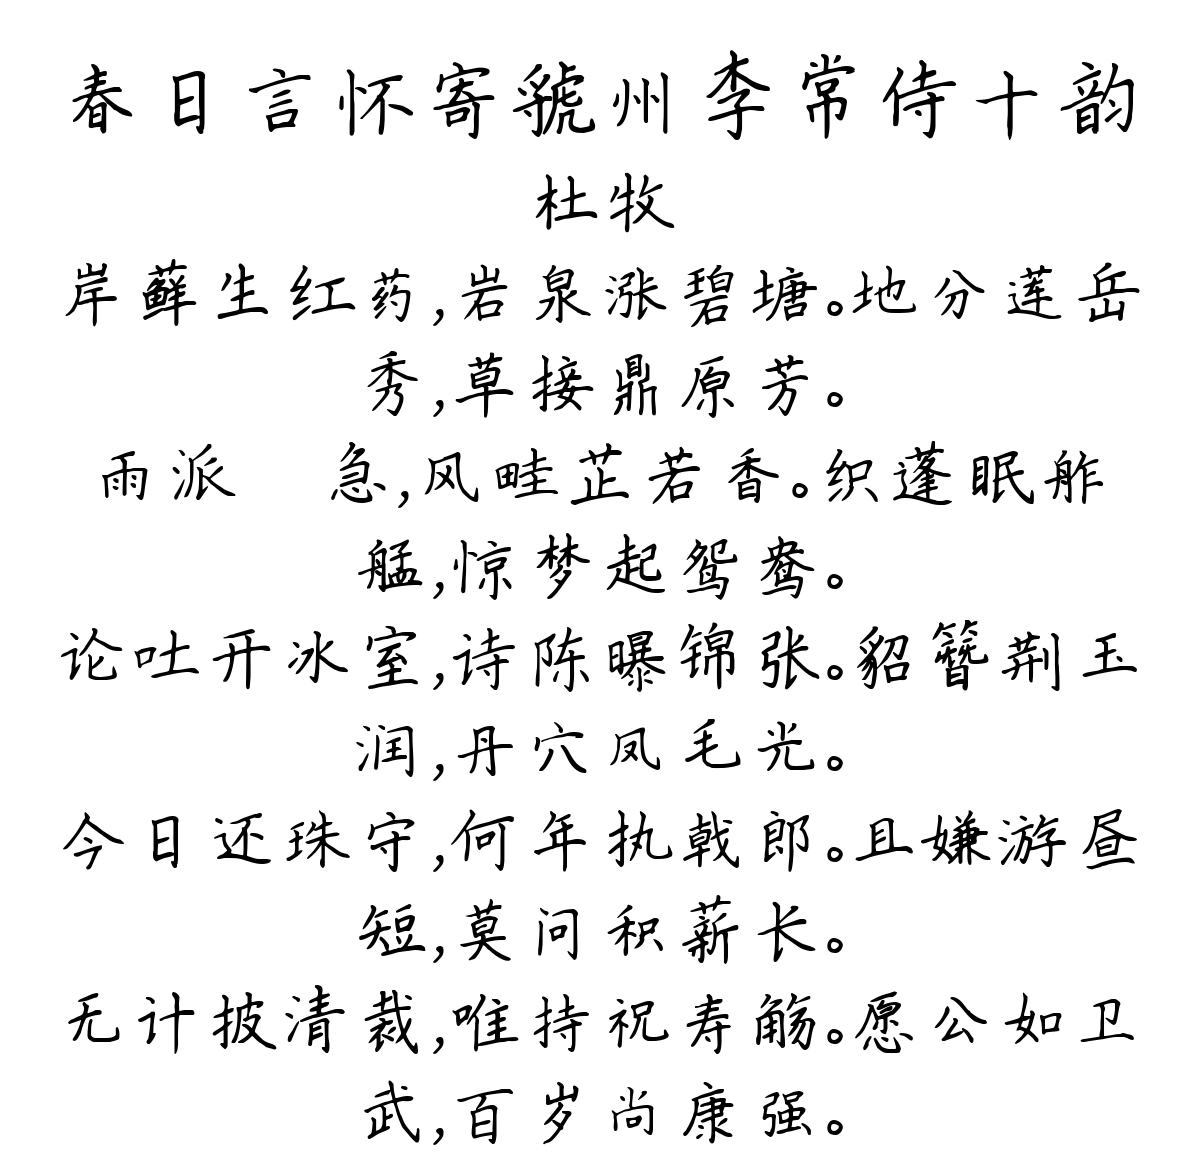 春日言怀寄虢州李常侍十韵
杜牧
岸藓生红药,岩泉涨碧塘。地分莲岳
秀,草接鼎原芳。
雨派 急,风畦芷若香。织蓬眠舴
艋,惊梦起鸳鸯。
论吐开冰室,诗陈曝锦张。貂簪荆玉
润,丹穴凤毛光。
今日还珠守,何年执戟郎。且嫌游昼
短,莫问积薪长。
无计披清裁,唯持祝寿觞。愿公如卫
武,百岁尚康强。